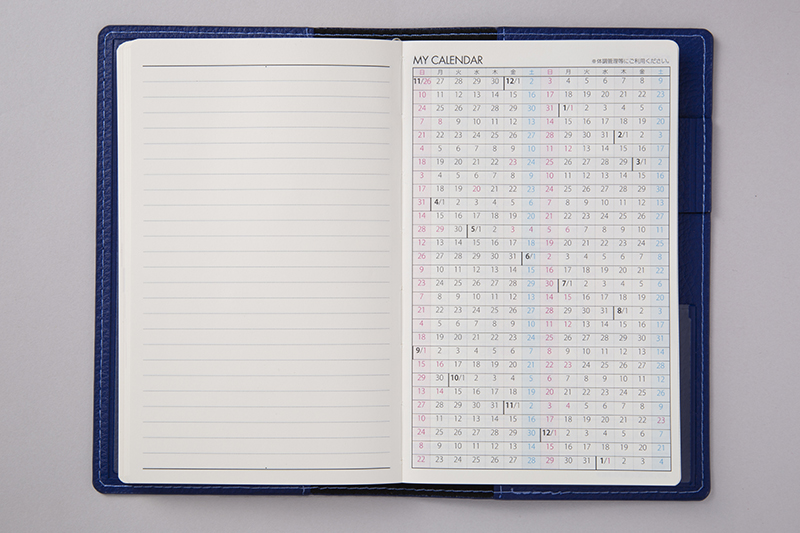 MY CALENDAR ※体調管理等にご利用ください。
日 月 火 水 木 金 土 日 月 火 水 木 金 土
11/26 27 28 29 30 12/1 2 3 4 5 6 7 8 9
10 11 12 13 14 15 16 17 18 19 20 21 22 23
24 25 26 27 28 29 30 31 1/1 2 3 4 5 6
7 8 9 10 11 12 13 14 15 16 17 18 19 20
21 22 23 24 25 26 27 28 29 30 31 2/1 2 3
4 5 6 7 8 9 10 11 12 13 14 15 16 17
18 19 20 21 22 23 24 25 26 27 28 29 3/1 2
3 4 5 6 7 8 9 10 11 12 13 14 15 16
17 18 19 20 21 22 23 24 25 26 27 28 29 30
31 4/1 2 3 4 5 6 7 8 9 10 11 12 13
14 15 16 17 18 19 20 21 22 23 24 25 26 27
28 29 30 5/1 2 3 4 5 6 7 8 9 10 11
12 13 14 15 16 17 18 19 20 21 22 23 24 25
26 27 28 29 30 31 6/1 2 3 4 5 6 7 8
9 10 11 12 13 14 15 16 17 18 19 20 21 22
23 24 25 26 27 28 29 30 7/1 2 3 4 5 6
7 8 9 10 11 12 13 14 15 16 17 18 19 20
21 22 23 24 25 26 27 28 29 30 31 8/1 2 3
4 5 6 7 8 9 10 11 12 13 14 15 16 17
18 19 20 21 22 23 24 25 26 27 28 29 30 31
9/1 2 3 4 5 6 7 8 9 10 11 12 13 14
15 16 17 18 19 20 21 22 23 24 25 26 27 28
29 30 10/1 2 3 4 5 6 7 8 9 10 11 12
13 14 15 16 17 18 19 20 21 22 23 24 25 26
27 28 29 30 31 11/1 2 3 4 5 6 7 8 9
10 11 12 13 14 15 16 17 18 19 20 21 22 23
24 25 26 27 28 29 30 12/1 2 3 4 5 6 7
8 9 10 11 12 13 14 15 16 17 18 19 20 21
22 23 24 25 26 27 28 29 30 31 1/1 2 3 4